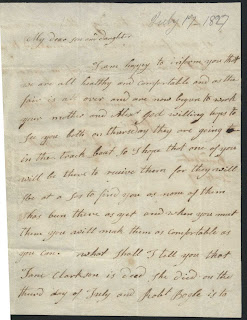 July 17 1827
My dear son and daughter
I am happy to inform you that
we are all healthy and comfortable and as the
fair is over and are now begun to work
your mother and Alexr feel willing to
see you both on thursday they are going
in the track boat So I hope that one of you
will be there to receive them for they will
be at a loss to find you as none of them
has bun there as yet and when you meet
them you will make them as comfortable as
you can what shall I tell you that
Jane Clarkson is died She died on the
third day of July and Robt is to